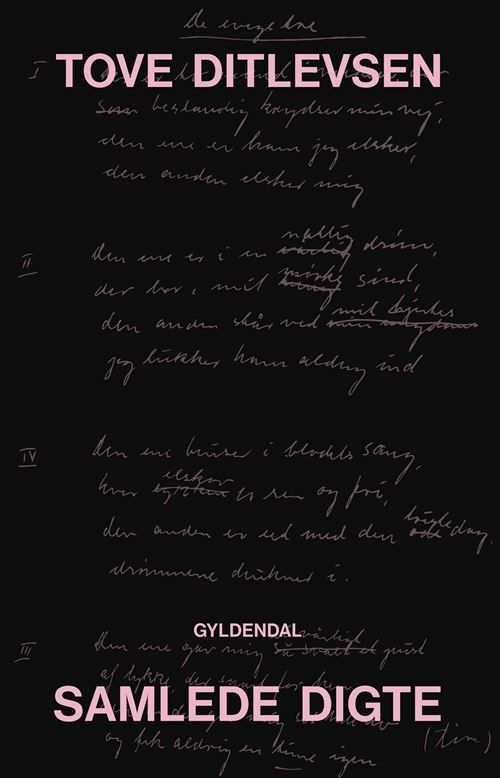 De evige tre
I
TOVE DITLEVSEN
bestandig krydser min vej,
den ene er ham jeg elsker,
den anden elsker mig
II
natlig
Den ene er i en drøm,
mørke
der bor i mit sind,
mit hjertes
den anden står ved
jeg lukker ham aldrig ind
IV
Den ene bruser i blodets sang,
elskov
hvor er ren og fri,
den anden er eet med den dag,
drømmene drukner i.
GYLDENDAL
III
Den ene gav mig pust
af lykke, der
SAMLEDE DIGTE
og fik aldrig en time igen